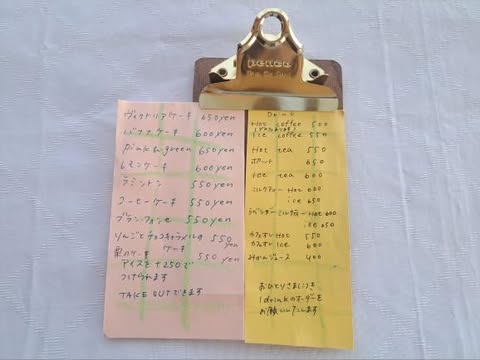 penco
ヴィクトリアケーキ 650yen
バナナケーキ 600yen
pink & green 650yen
レモンケーキ 600yen
ラミントン 550yen
コーヒーケーキ 550yen
550yen
りんごとチョコキャラメルの 550
ケーキ yen
栗のケーキ 550 yen
アイスを+250で
つけられます
TAKE OUTできます
Drink
Hot coffee 500
Ice coffee 550
Hot tea 550
ポット 650
ice tea 600
ミルクティー Hot 600
ice 650
ラベンダーミルクティー Hot 600
ice 650
カフェオレ Hot 550
カフェオレ Ice 600
みかんジュース 400
おひとりさまにつき
1drinkのオーダーを
お願いいたします